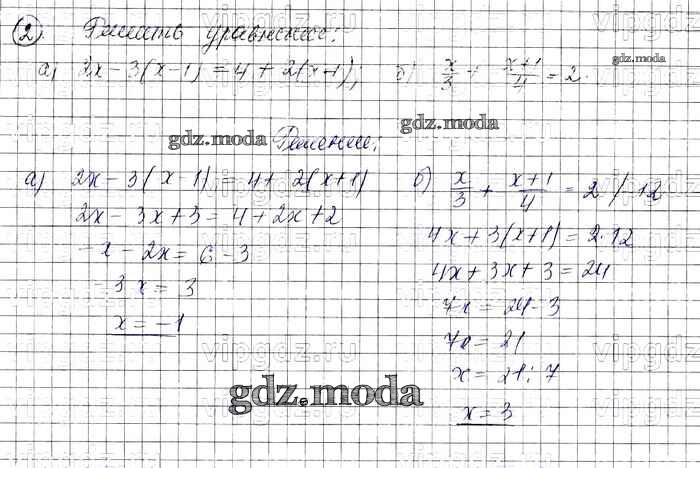 2). Решить уравнение:
а) 2x - 3(x-1) = 4 + 2(x+1); б) x/3 + (x+1)/4 = 2.
gdz.moda
gdz.moda
gdz.moda Решение:
а) 2x - 3(x-1) = 4 + 2(x+1)
2x - 3x + 3 = 4 + 2x + 2
-x - 2x = 6 - 3
-3x = 3
x = -1
б) x/3 + (x+1)/4 = 2 / ·12
4x + 3(x+1) = 2·12
4x + 3x + 3 = 24
7x = 24 - 3
7x = 21
x = 21 : 7
x = 3
vipgdz.ru
vipgdz.ru
gdz.moda